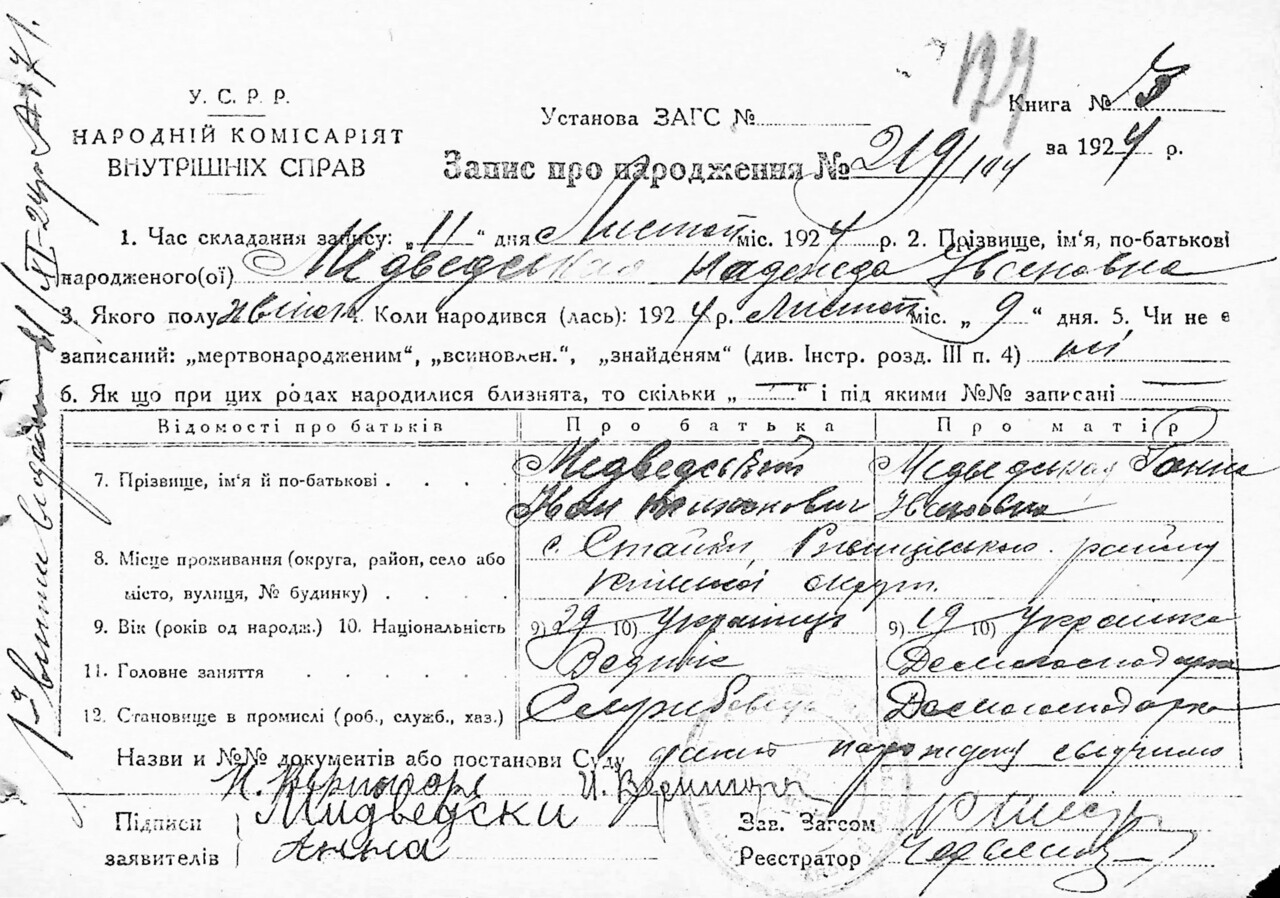 У. С. Р. Р.
НАРОДНІЙ КОМІСАРІЯТ
ВНУТРІШНІХ СПРАВ
Установа ЗАГС №
127
Книга № 5
за 1924 р.
Запис про народження № 219/104
1. Час складання запису: „ 11 “ дня Листоп міс. 1924 р. 2. Прізвище, ім'я, по-батькові
народженого(ої) Медведськая Надежда Ивановна
3. Якого полу жіноч 4. Коли народився (лась): 1924 р. Листоп міс. „ 9 “ дня. 5. Чи не є
записаний: „мертвонародженим“, „всиновлен.“, „знайденям“ (див. Інстр. розд. III п. 4) ні
6. Як що при цих родах народилися близнята, то скільки „ — “ і під якими №№ записані —
Відомості про батьків Про батька Про матір
7. Прізвище, ім'я й по-батькові . . . . Медведський Медведськая Ганна
Иван Ивановна
8. Місце проживання (округа, район, село або с. Стайки Ржищівського району
місто, вулиця, № будинку) . . . . Київської округи.
9. Вік (років од народж.) 10. Національність 9) 29 10) Українець 9) 19 10) Українка
11. Головне заняття . . . . . Домогосподарка
12. Становище в промислі (роб., служб., хаз.) Службовець Домогосподарка
Назви и №№ документів або постанови Суду
Підписи Мидведски
заявителів Анна
Зав. Загсом
Реєстратор